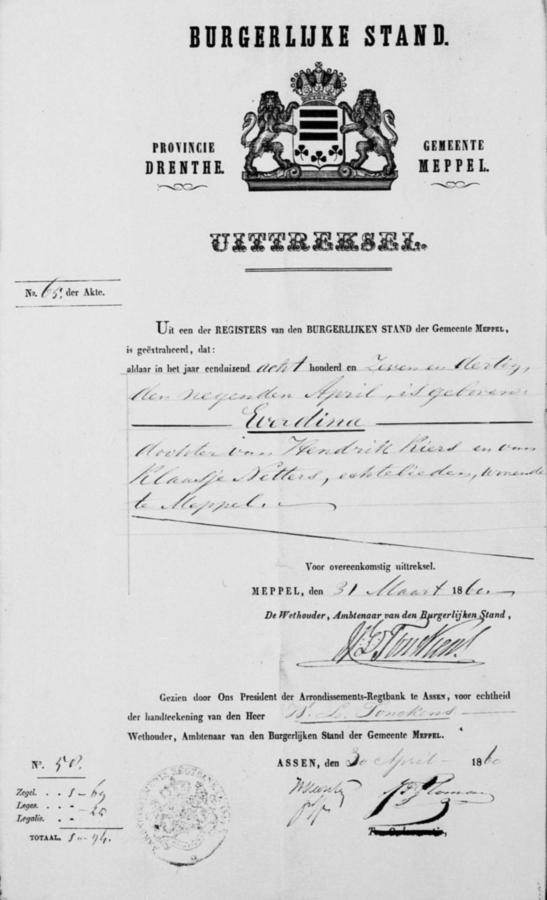 BURGERLIJKE STAND.
PROVINCIE
DRENTHE.
GEMEENTE
MEPPEL.
UITTREKSEL.
No. 65. der Akte.
Uit een der REGISTERS van den BURGERLIJKEN STAND der Gemeente MEPPEL,
is geëxtraheerd, dat:
aldaar in het jaar eenduizend acht honderd en zeven en dertig,
den negenden April, is geboren
Everdina
dochter van Hendrik Kiers en van
Klaasje Netters, echtelieden, wonende
te Meppel.
Voor overeenkomstig uittreksel.
MEPPEL, den 31 Maart 1860
De Wethouder, Ambtenaar van den Burgerlijken Stand,
Gezien door Ons President der Arrondissements-Regtbank te ASSEN, voor echtheid
der handteekening van den Heer W. L. Tonckens
Wethouder, Ambtenaar van den Burgerlijken Stand der Gemeente MEPPEL.
ASSEN, den 30 April 1860
No. 58.
Zegel. . . 1-69
Leges. . . -25
Legalis. . . -
TOTAAL. 1-94.